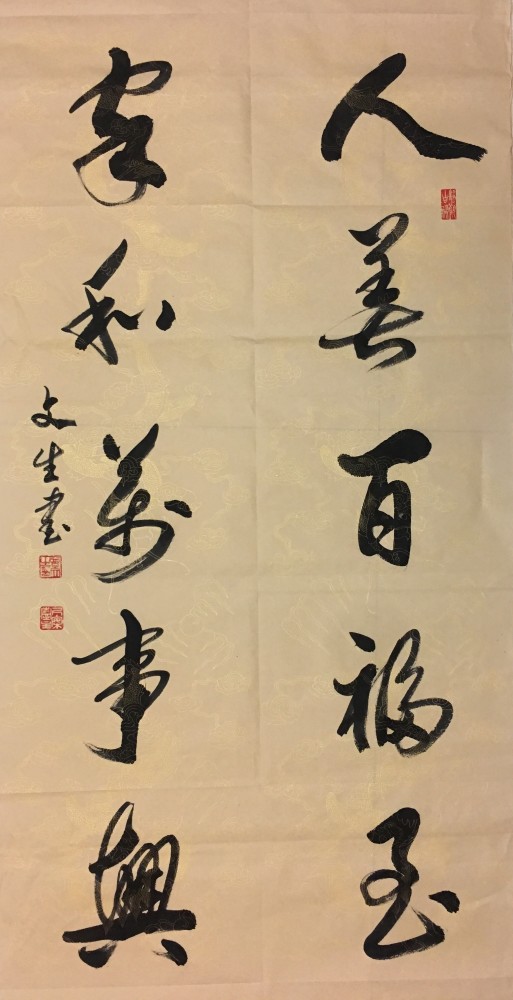 人善百福至
家和萬事興
文生書